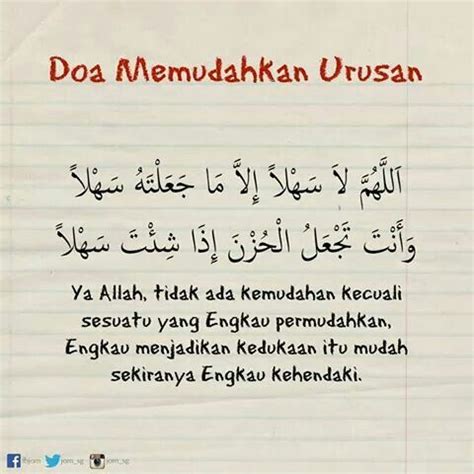 Doa Memudahkan Urusan
اَللَّهُمَّ لاَ سَهْلاً إِلاَّ مَا جَعَلْتَهُ سَهْلاً
وَأَنْتَ تَجْعَلُ الْحُزْنَ إِذَا شِئْتَ سَهْلاً
Ya Allah, tidak ada kemudahan kecuali
sesuatu yang Engkau permudahkan,
Engkau menjadikan kedukaan itu mudah
sekiranya Engkau kehendaki.
jom_sg jom_sg